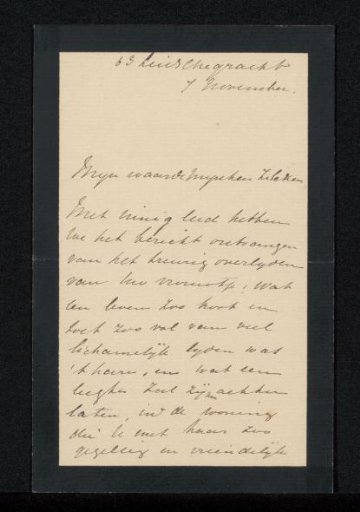 63 Leidschegracht
7 November.
Mijn waarde Mijnheer Zilcken
Met innig leed hebben
We het bericht ontvangen
van het treurig overlijden
van Uw vrouwtje; wat
een leven zoo kort en
toch zoo vol van veel
lichamelijk lyden was
't hare, en wat een
leegte zal zij achter
laten, in de woning
die U met haar zoo
gezellig en vriendelijk